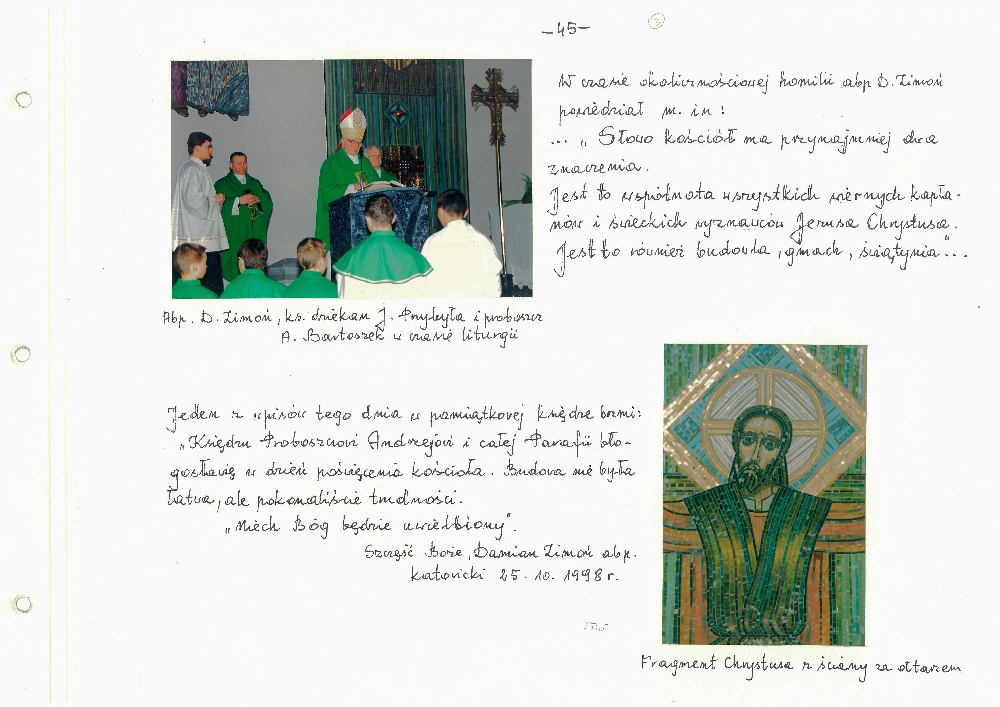 –45–
W czasie okolicznościowej homilii abp D. Zimoń
powiedział m. in :
... „ Słowo kościół ma przynajmniej dwa
znaczenia.
Jest to wspólnota wszystkich wiernych kapła-
nów i świeckich wyznawców Jezusa Chrystusa.
Jest to również budowla, gmach, świątynia"...
Abp. D. Zimoń, ks. dziekan J. Przybyła i proboszcz
A. Bartoszek w czasie liturgii
Jeden z wpisów tego dnia w pamiątkowej księdze brzmi:
„Księdzu Proboszczowi Andrzejowi i całej Parafii bło-
gosławię w dzień poświęcenia kościoła. Budowa nie była
łatwa, ale pokonaliście trudności.
„Niech Bóg będzie uwielbiony".
Szczęść Boże, Damian Zimoń abp.
katowicki 25. 10. 1998 r.
Fragment Chrystusa z ściany za ołtarzem